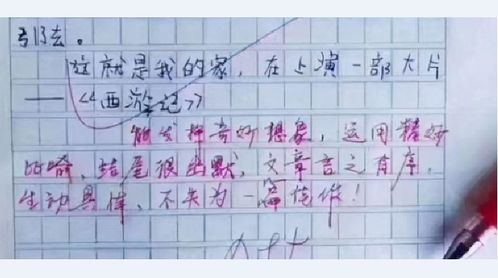 引了去。
这就是我的家，在上演一部大片
——《西游记》
能发挥奇妙想象，运用精妙
的喻，结尾很幽默，文章言之有序，
生动具体，不失为一篇佳作！
A++